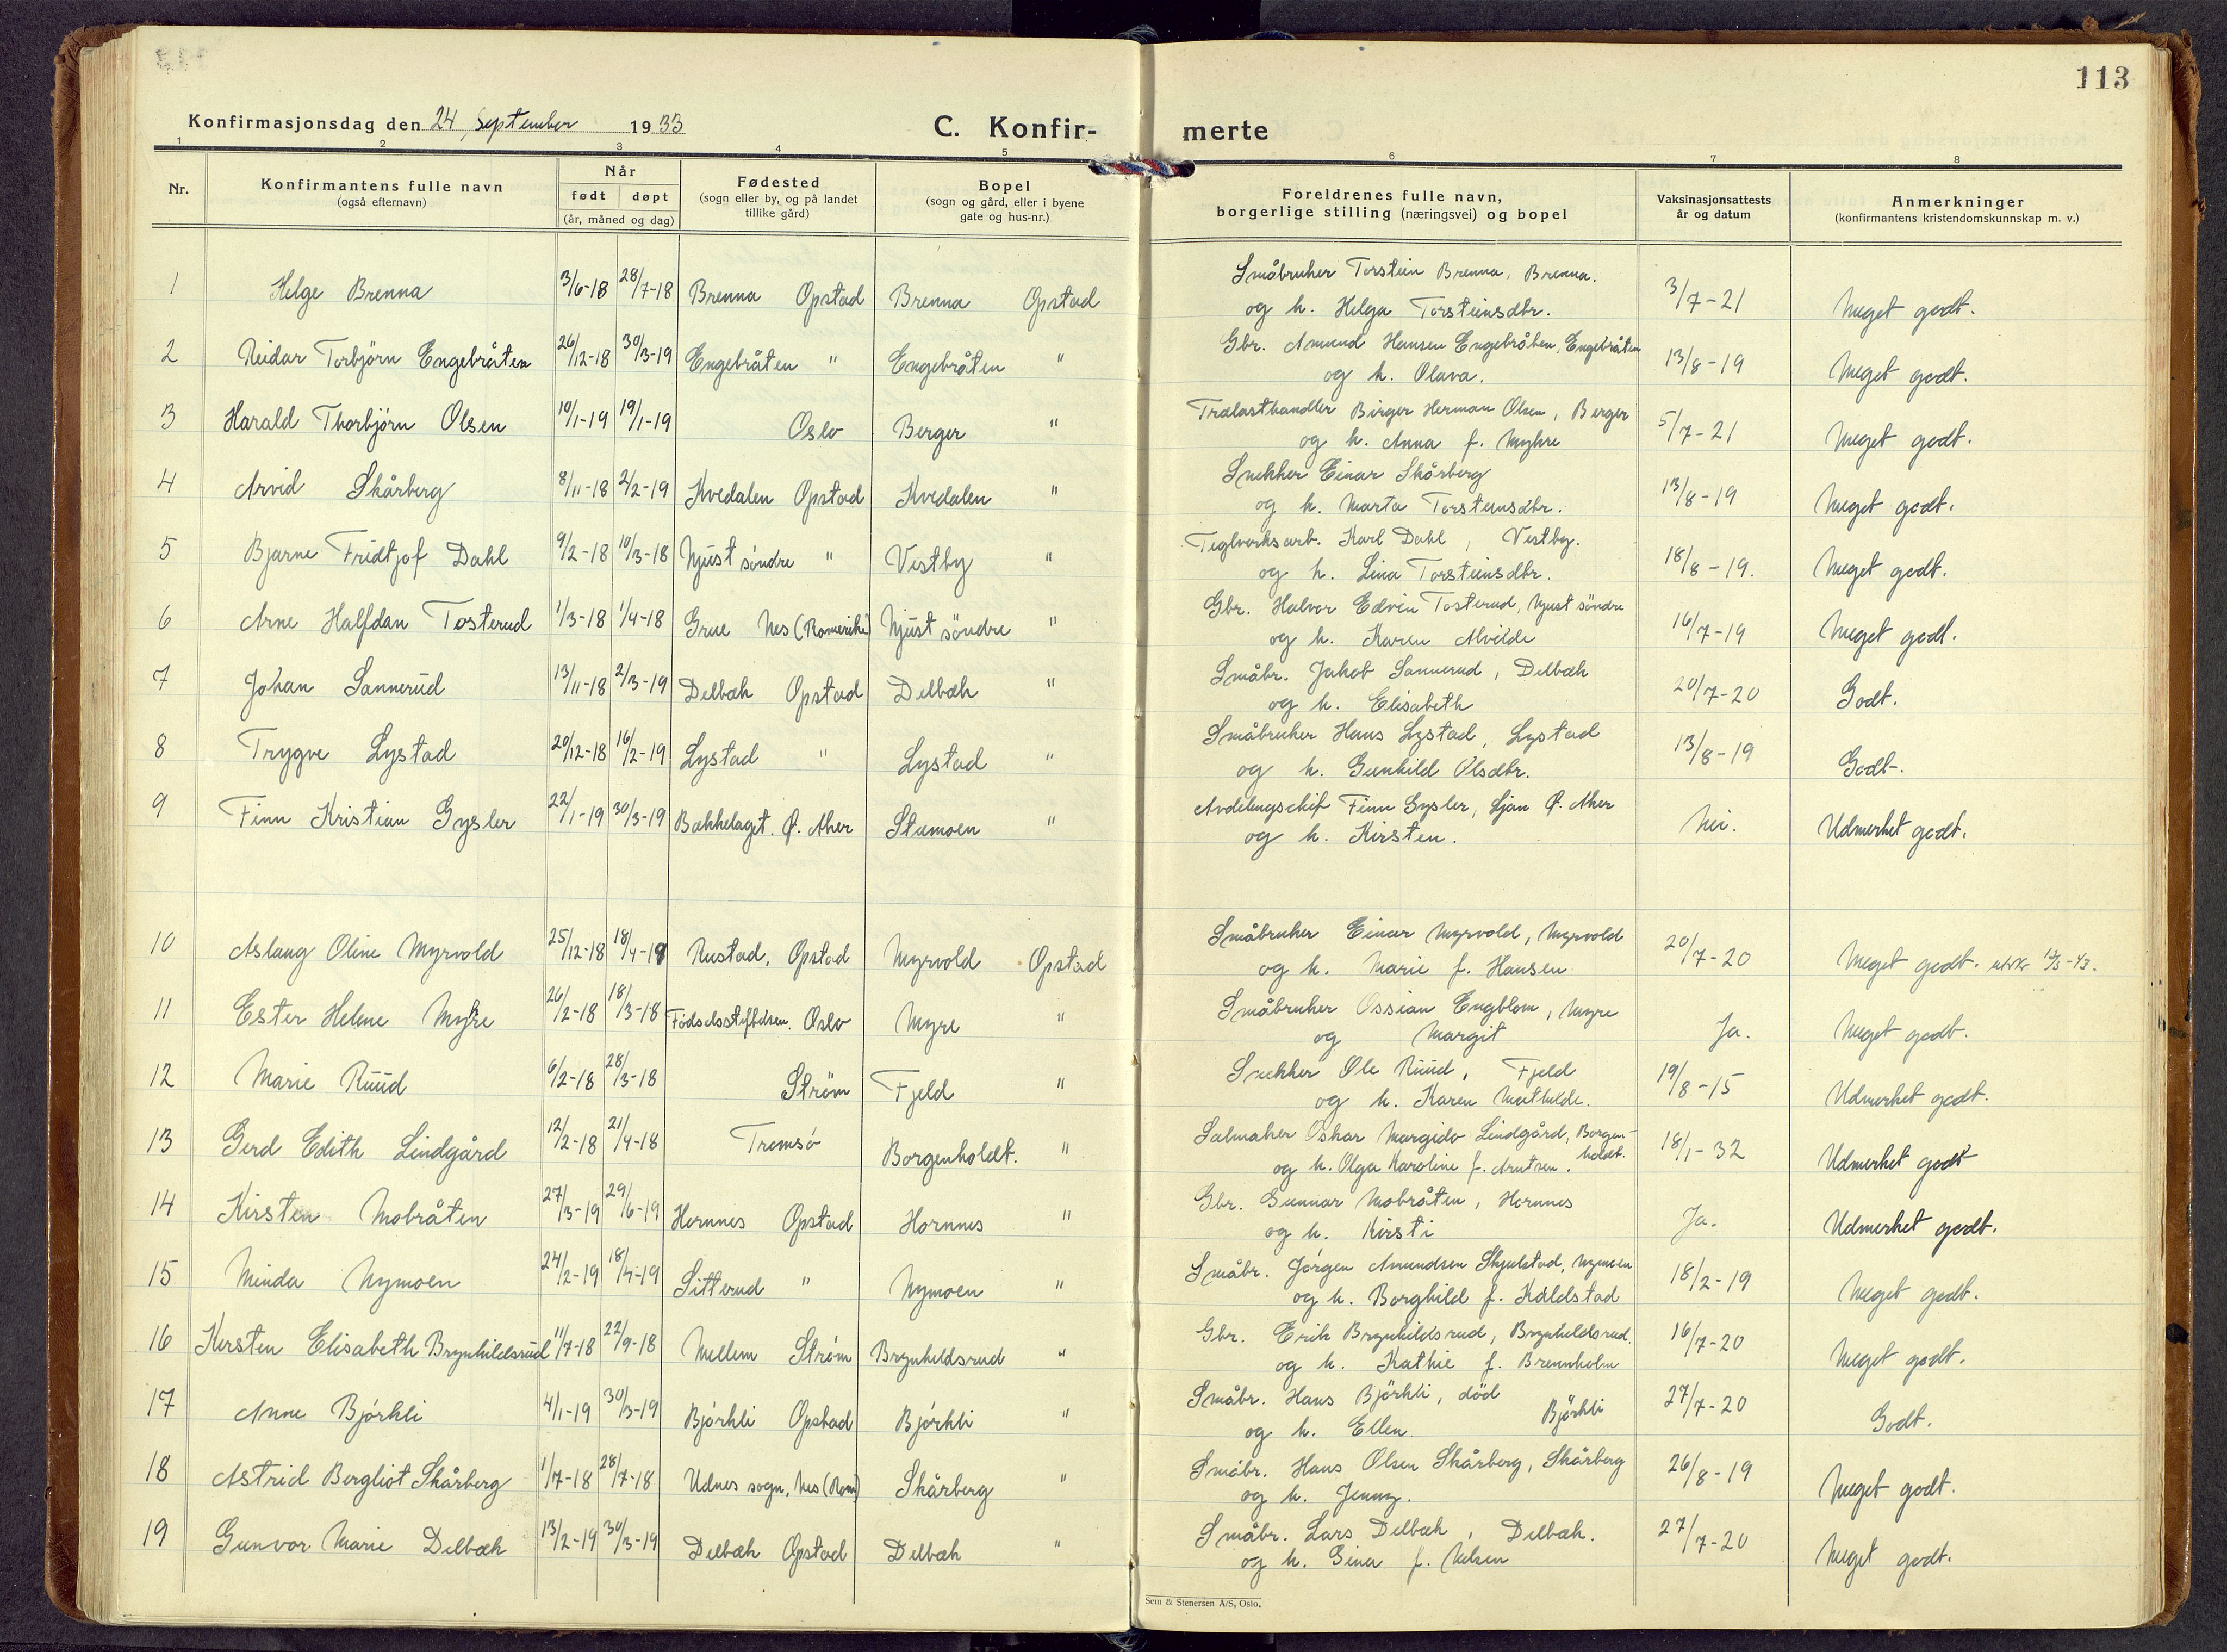 113
Konfirmasjonsdag den 24 September 1933
C. Konfir- merte
1 2 3 4 5 6 7 8
Nr.
Konfirmantens fulle navn
(også efternavn)
Når
født døpt
(år, måned og dag)
Fødested
(sogn eller by, og på landet
tillike gård)
Bopel
(sogn og gård, eller i byene
gate og hus-nr.)
Foreldrenes fulle navn,
borgerlige stilling (næringsvei) og bopel
Vaksinasjonsattests
år og datum
Anmerkninger
(konfirmantens kristendomskunnskap m. v.)
1 Helge Brenna 3/6-18 28/7-18 Brenna Opstad Brenna Opstad Småbruker Torstein Brenna, Brenna. 3/7-21 Meget godt.
og h. Helga Torsteinsdtr.
2 Reidar Torbjörn Engebråten 26/12-18 30/3-19 Engebråten " Engebråten " Gbr. Amund Hansen Engebråten, Engebråten 13/8-19 Meget godt.
og h. Olava.
3 Harald Thorbjörn Olsen 10/1-19 19/1-19 Oslo Berger " Trælasthandler Birger Herman Olsen, Berger 5/7-21 Meget godt.
og h. Anna f. Myhre
4 Arvid Skårberg 8/11-18 2/2-19 Kvedalen Opstad Kvedalen " Snekker Einar Skårberg 13/8-19 Meget godt.
og h. Marta Torsteinsdtr.
5 Bjarne Fridtjof Dahl 9/2-18 10/3-18 Mjust söndre " Vestby " Teglverksarb. Karl Dahl, Vestby. 18/8-19. Meget godt.
og h. Lina Torsteinsdtr.
6 Arne Halfdan Tosterud 1/3-18 1/4-18 Grue Nes (Romerike) Mjust söndre " Gbr. Halvor Edvin Tosterud, Mjust söndre 16/7-19 Meget godt.
og h. Karen Alvilde
7 Johan Sannerud 13/11-18 2/3-19 Delbæk Opstad Delbæk " Småbr. Jakob Sannerud, Delbæk 20/7-20 Godt.
og h. Elisabeth
8 Trygve Lystad 20/12-18 16/2-19 Lystad " Lystad " Småbruker Hans Lystad, Lystad 13/8-19 Godt.
og h. Gunhild Olsdtr.
9 Finn Kristian Gysler 22/1-19 30/3-19 Bækkelaget. Ø. Aker Stumoen " Avdelingschef Finn Gysler, Ljan Ø. Aker Nei. Udmerket godt.
og h. Kirsten.
10 Aslaug Oline Myrvold 25/12-18 18/4-19 Rustad, Opstad Myrvold Opstad Småbruker Einar Myrvold, Myrvold 20/7-20 Meget godt.
og h. Marie f. Hansen
11 Ester Helene Myre 26/2-18 18/3-18 Födselsstiftelsen. Oslo Myre " Småbruker Ossian Engblom, Myre Ja. Meget godt.
og Margit
12 Marie Ruud 6/2-18 28/3-18 Strøm Fjeld " Snekker Ole Ruud, Fjeld 19/8-15 Udmerket godt.
og h. Karen Mathilde.
13 Gerd Edith Lindgård 12/2-18 21/4-18 Tromsö Borgenholdt. " Salmaker Oskar Margido Lindgård, Borgen- 18/1-32 Udmerket godt
og h. Olga Karoline f. Arntsen. holdt.
14 Kirsten Mobråten 27/3-19 29/6-19 Hornnes Opstad Hornnes " Gbr. Gunnar Mobråten, Hornnes Ja. Udmerket godt.
og h. Kirsti
15 Minda Nymoen 24/2-19 18/4-19 Sitterud " Nymoen " Småbr. Jörgen Amundsen Skjulstad, Nymoen 18/2-19 Meget godt.
og h. Borghild f. Kåldstad
16 Kirsten Elisabeth Brynhildsrud 11/7-18 22/9-18 Mellem Strøm Brynhildsrud " Gbr. Erik Brynhildsrud, Brynhildsrud. 16/7-20 Meget godt.
og h. Kathie f. Brennholm
17 Anne Björkli 4/1-19 30/3-19 Björkli Opstad Björkli " Småbr. Hans Björkli, död 27/7-20 Godt.
og h. Ellen Björkli
18 Astrid Bergliot Skårberg 1/7-18 28/7-18 Udnes sogn, Nes (Rom) Skårberg " Småbr. Hans Olsen Skårberg, Skårberg 26/8-19 Meget godt.
og h. Jenny.
19 Gunvor Marie Delbæk 13/2-19 30/3-19 Delbæk Opstad Delbæk " Småbr. Lars Delbæk, Delbæk. 27/7-20 Meget godt.
og h. Gina f. Nilsen
Sem & Stenersen A/S, Oslo.